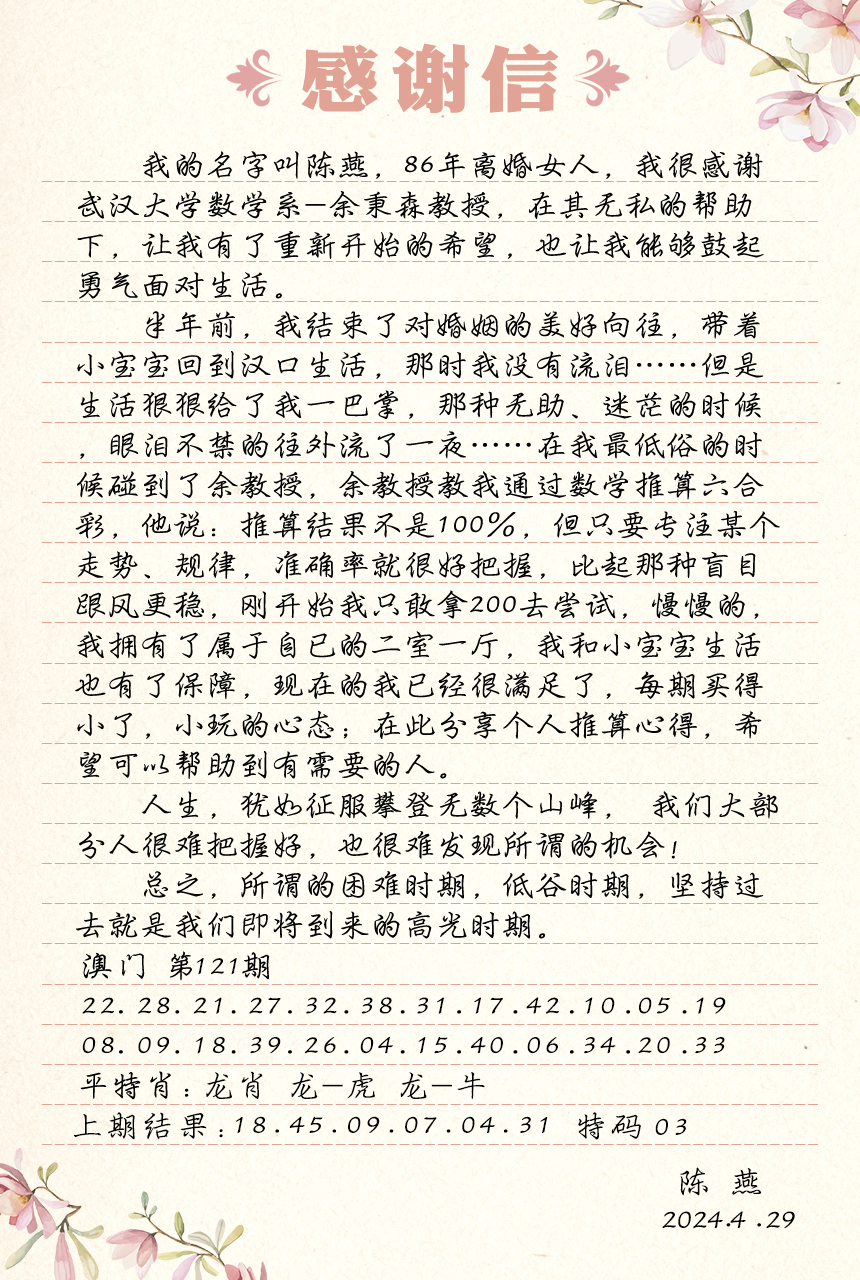 感谢信
我的名字叫陈燕，86年离婚女人，我很感谢
武汉大学数学系—余秉森教授，在其无私的帮助
下，让我有了重新开始的希望，也让我能够鼓起
勇气面对生活。
半年前，我结束了对婚姻的美好向往，带着
小宝宝回到汉口生活，那时我没有流泪……但是
生活狠狠给了我一巴掌，那种无助、迷茫的时候
，眼泪不禁的往外流了一夜……在我最低俗的时
候碰到了余教授，余教授教我通过数学推算六合
彩，他说：推算结果不是100%，但只要专注某个
走势、规律，准确率就很好把握，比起那种盲目
跟风更稳，刚开始我只敢拿200去尝试，慢慢的，
我拥有了属于自已的二室一厅，我和小宝宝生活
也有了保障，现在的我已经很满足了，每期买得
小了，小玩的心态；在此分享个人推算心得，希
望可以帮助到有需要的人。
人生，犹如征服攀登无数个山峰， 我们大部
分人很难把握好，也很难发现所谓的机会！
总之，所谓的困难时期，低谷时期，坚持过
去就是我们即将到来的高光时期。
澳门 第121期
22.28.21.27.32.38.31.17.42.10.05.19
08.09.18.39.26.04.15.40.06.34.20.33
平特肖：龙肖 龙—虎 龙—牛
上期结果：18.45.09.07.04.31 特码 03
陈 燕
2024.4.29